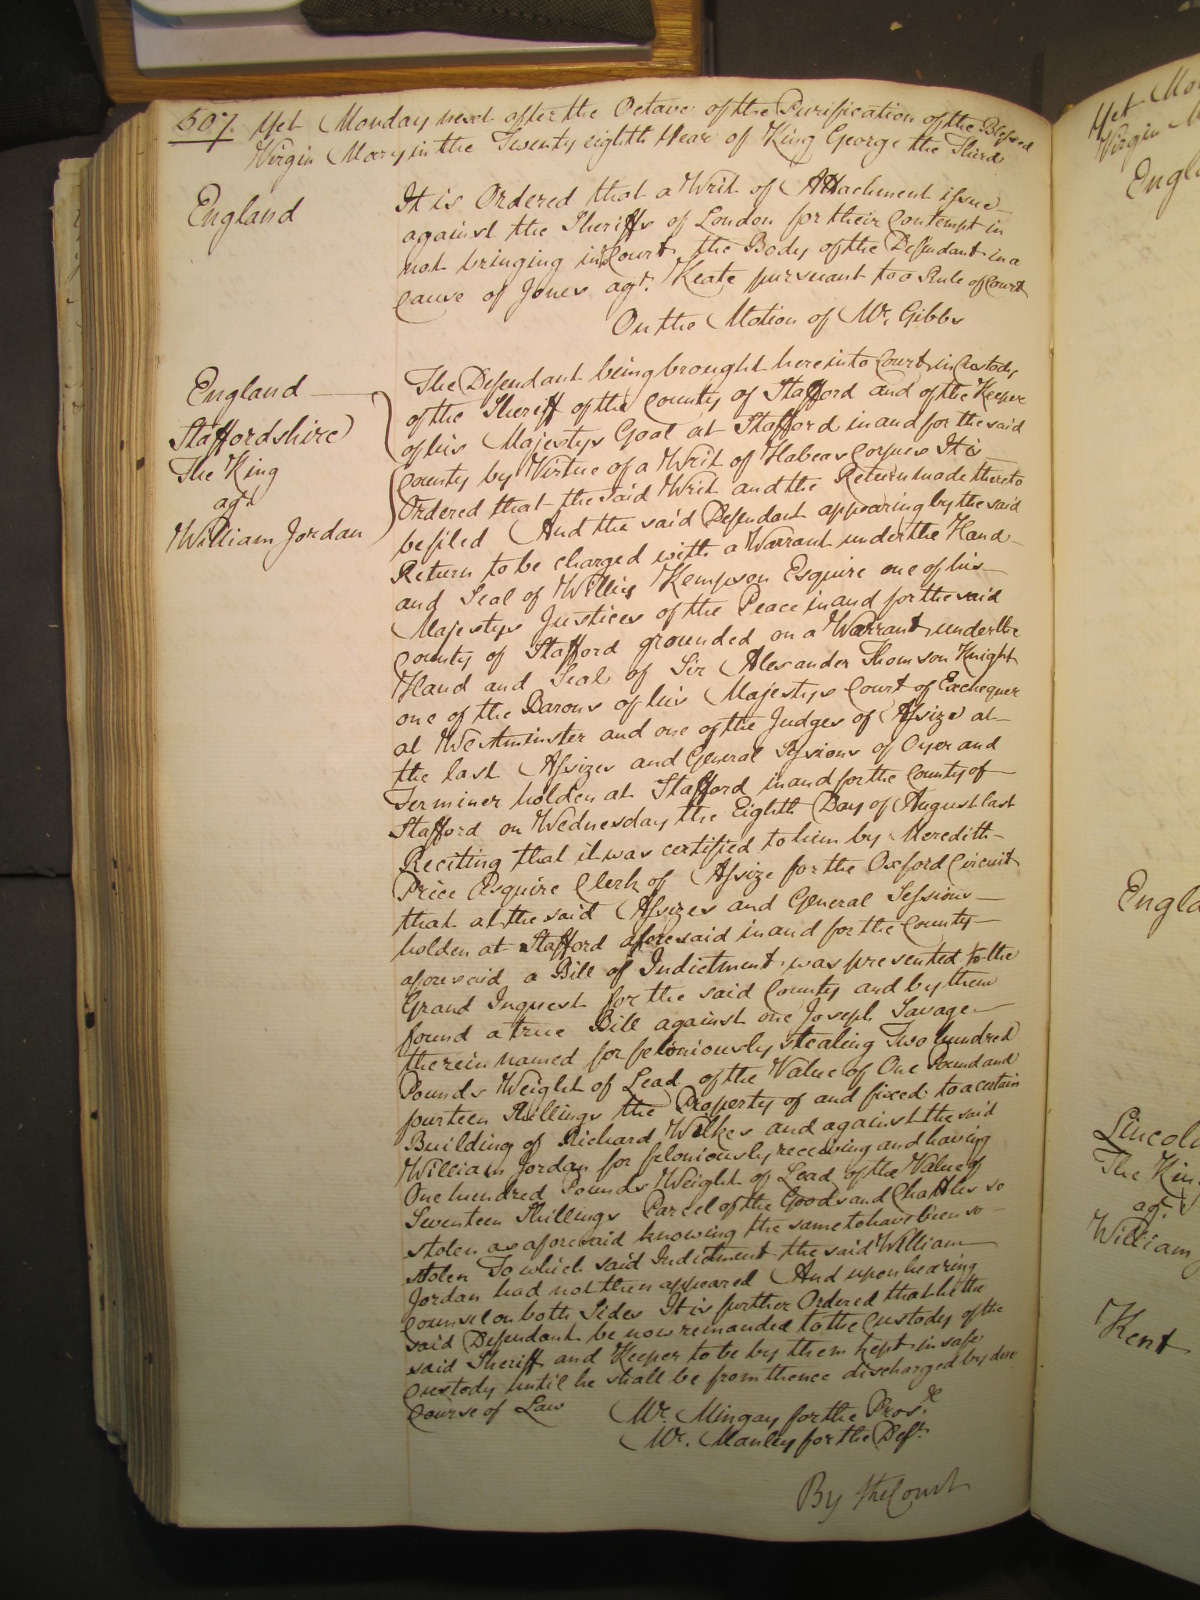 507. Yet Monday next after the Octave of the Purification of the Blessed
Virgin Mary in the Twenty eighth Year of King George the Third
England
It is Ordered that a Writ of Attachment issue
against the Sheriffs of London for their Contempt in
not bringing into Court the Body of the Defendant in a
cause of Jones agt. Keate pursuant to a Rule of Court
On the Motion of Mr. Gibbs
England
Staffordshire
The King
agt
William Jordan
The Defendant being brought here into Court in Custody
of the Sheriff of the County of Stafford and of the Keeper
of his Majestys Goal at Stafford in and for the said
County by Virtue of a Writ of Habeas Corpus It is
Ordered that the said Writ and the Return made thereto
be filed And the said Defendant appearing by the said
Return to be charged with a Warrant under the Hand
and Seal of Willis Kempson Esquire one of his
Majestys Justices of the Peace in and for the said
County of Stafford grounded on a Warrant under the
Hand and Seal of Sir Alexander Thomson Knight
one of the Barons of his Majestys Court of Exchequer
at Westminster and one of the Judges of Assize at
the last Assizes and General Sessions of Oyer and
Terminer holden at Stafford in and for the County of
Stafford on Wednesday the Eighth Day of August last
Reciting that it was certified to him by Meredith
Price Esquire Clerk of Assize for the Oxford Circuit
that at the said Assizes and General Sessions
holden at Stafford aforesaid in and for the County
aforesaid a Bill of Indictment was presented to the
Grand Inquest for the said County and by them
found a true Bill against one Joseph Savage
therein named for feloniously stealing Two hundred
Pounds Weight of Lead of the Value of One Pound and
fourteen Shillings the Property of and fixed to a certain
Building of Richard Wilkes and against the said
William Jordan for feloniously receiving and having
One hundred Pounds Weight of Lead of the Value of
Seventeen Shillings Parcel of the Goods and Chattles so
stolen as aforesaid knowing the same to have been so
stolen To which said Indictment the said William
Jordan had not then appeared And upon hearing
Counsel on both Sides It is further Ordered that he the
said Defendant be now remanded to the Custody of the
said Sheriff and Keeper to be by them kept in safe
custody until he shall be from thence discharged by due
Course of Law
Mr. Mingay for the Prosr.
Mr. Manley for the Deft.
By the Court
Yet Mon
Virgin M
Engl
Engla
Lincoln
The Kin
agt.
William
Kent